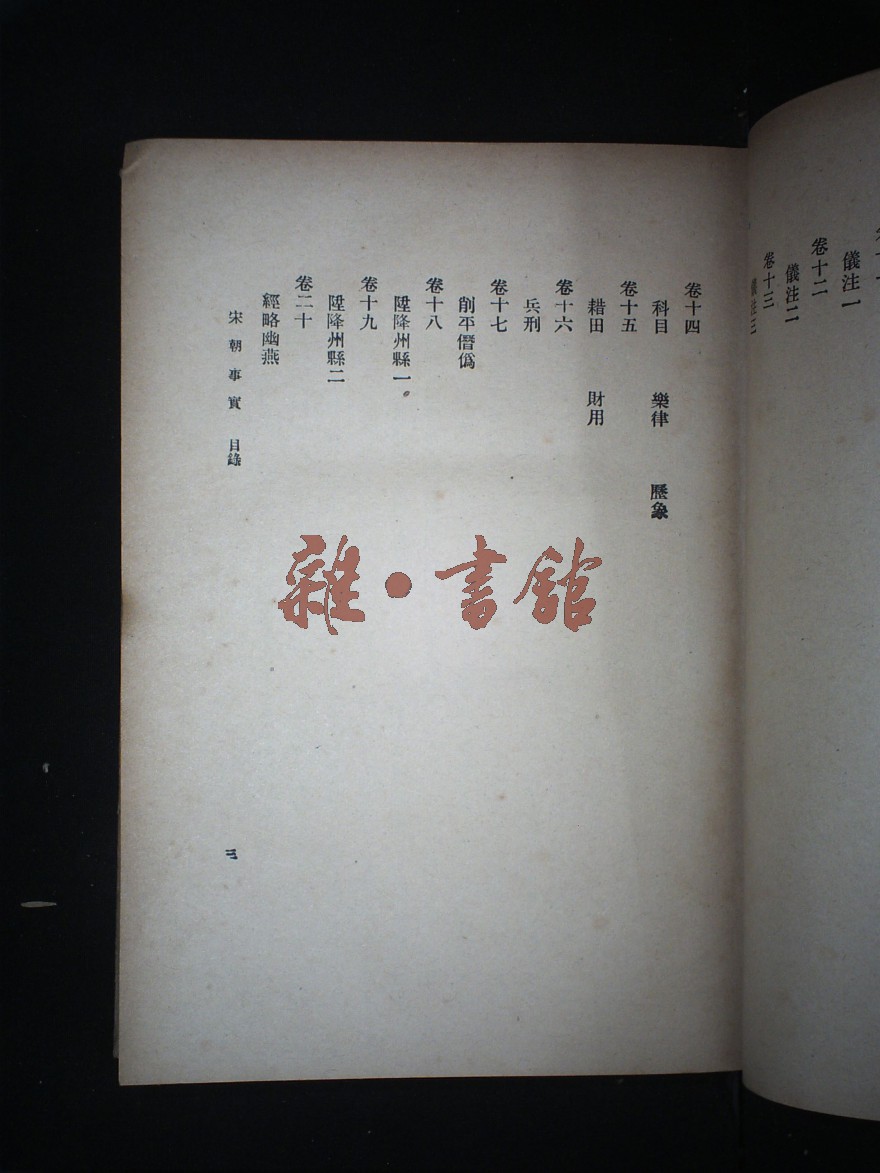 儀注一
卷十二
儀注二
卷十三
儀注三
卷十四
科目 樂律 歷象
卷十五
耤田 財用
卷十六
兵刑
卷十七
削平僭僞
卷十八
陞降州縣一
卷十九
陞降州縣二
卷二十
經略幽燕
宋朝事實 目錄
三
雜·書館